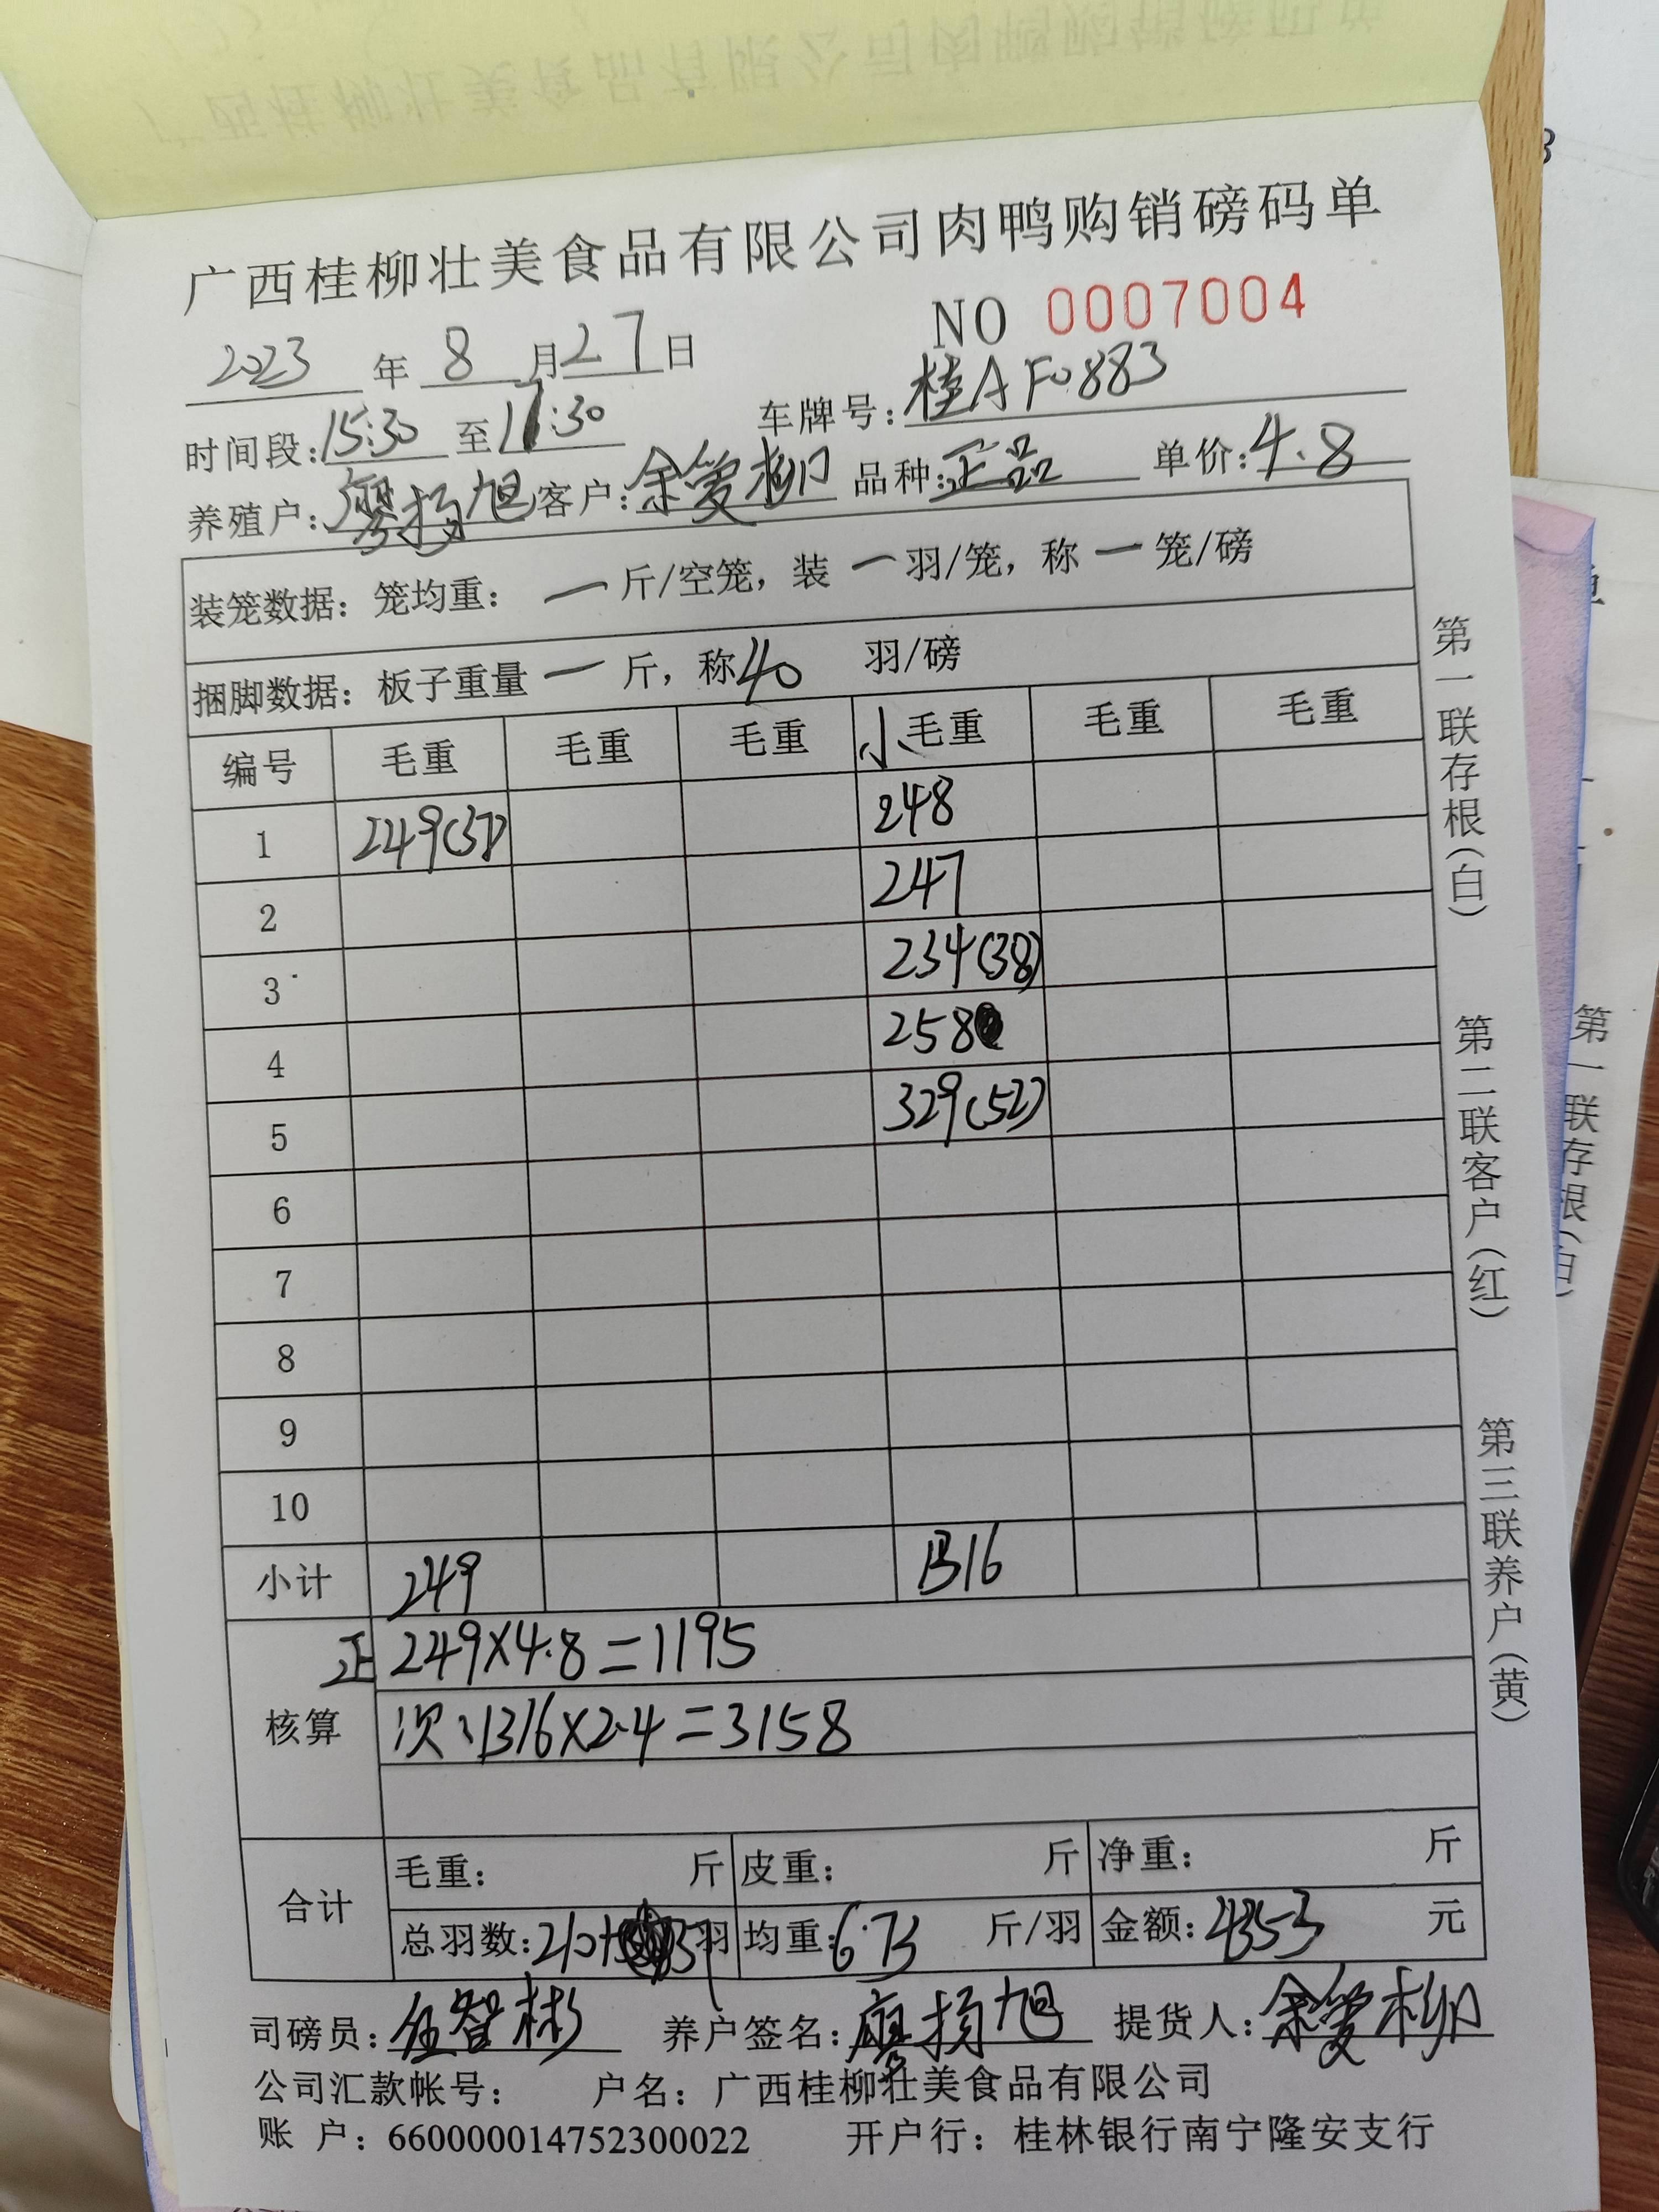 广西桂柳壮美食品有限公司肉鸭购销磅码单
NO 0007004
2023 年 8 月 27 日
时间段: 15:30 至 17:30 车牌号: 桂A F0883
养殖户: 廖扬旭 客户: 余爱柳 品种: 正品 单价: 4.8
装笼数据: 笼均重: 一 斤/空笼, 装 一 羽/笼, 称 一 笼/磅
捆脚数据: 板子重量 一 斤, 称 40 羽/磅
编号 毛重 毛重 毛重 小 毛重 毛重 毛重
1 249(37) 248
2 247
3 234(38)
4 258
5 329(52)
6
7
8
9
10
小计 249 1316
正 249×4.8=1195
核算 次:1316×2.4=3158
合计 毛重: 斤 皮重: 斤 净重: 斤
总羽数: 210+37 羽 均重: 6.73 斤/羽 金额: 4353 元
司磅员: 智彬 养户签名: 廖扬旭 提货人: 余爱柳
公司汇款帐号: 户名: 广西桂柳壮美食品有限公司
账 户: 660000014752300022 开户行: 桂林银行南宁隆安支行
第一联存根(白)
第二联客户(红)
第三联养户(黄)
第一联存根(白)